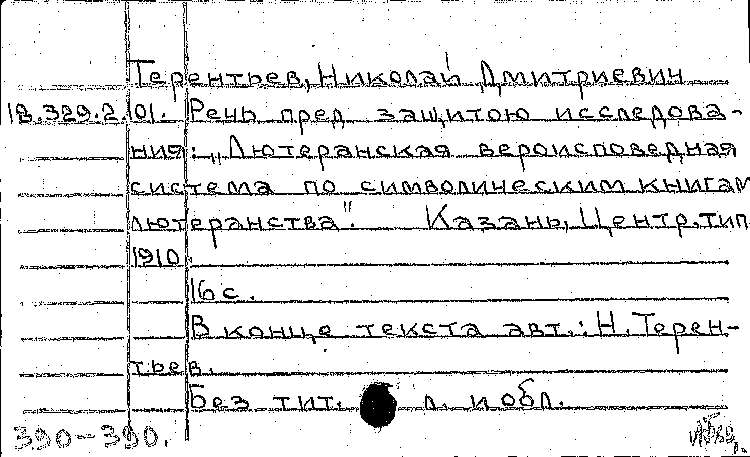 Терентьев, Николай Дмитриевич
18.329.2.101. Речь пред защитою исследова-
ния: „Лютеранская вероисповедная
система по символическим книгам
лютеранства". Казань, Центр. тип.
1910.
16 с.
В конце текста авт.: Н. Терен-
тьев.
Без тит. л. и обл.
390-390.